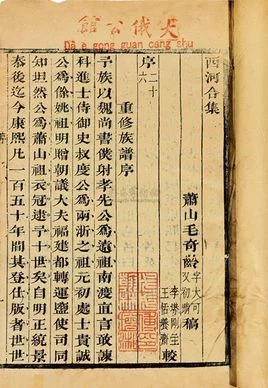 大俄公館
Dà é gong guan cang shu
西河合集
蕭山毛奇齡字大可又初晴稿
李塨剛主
王恬養齋較
序二十六
重修族譜序
予族以魏尚書僕射孝先公為遠祖南渡直言敢諫
科進士侍御史叔度公為兩浙之祖元初處士貴誠
公為餘姚祖明贈朝議大夫福建都轉運鹽使司同
知坦然公為蕭山祖衣冠逮予十世矣自明正統景
泰後迄今康熙凡一百五十年間其登仕版者世世